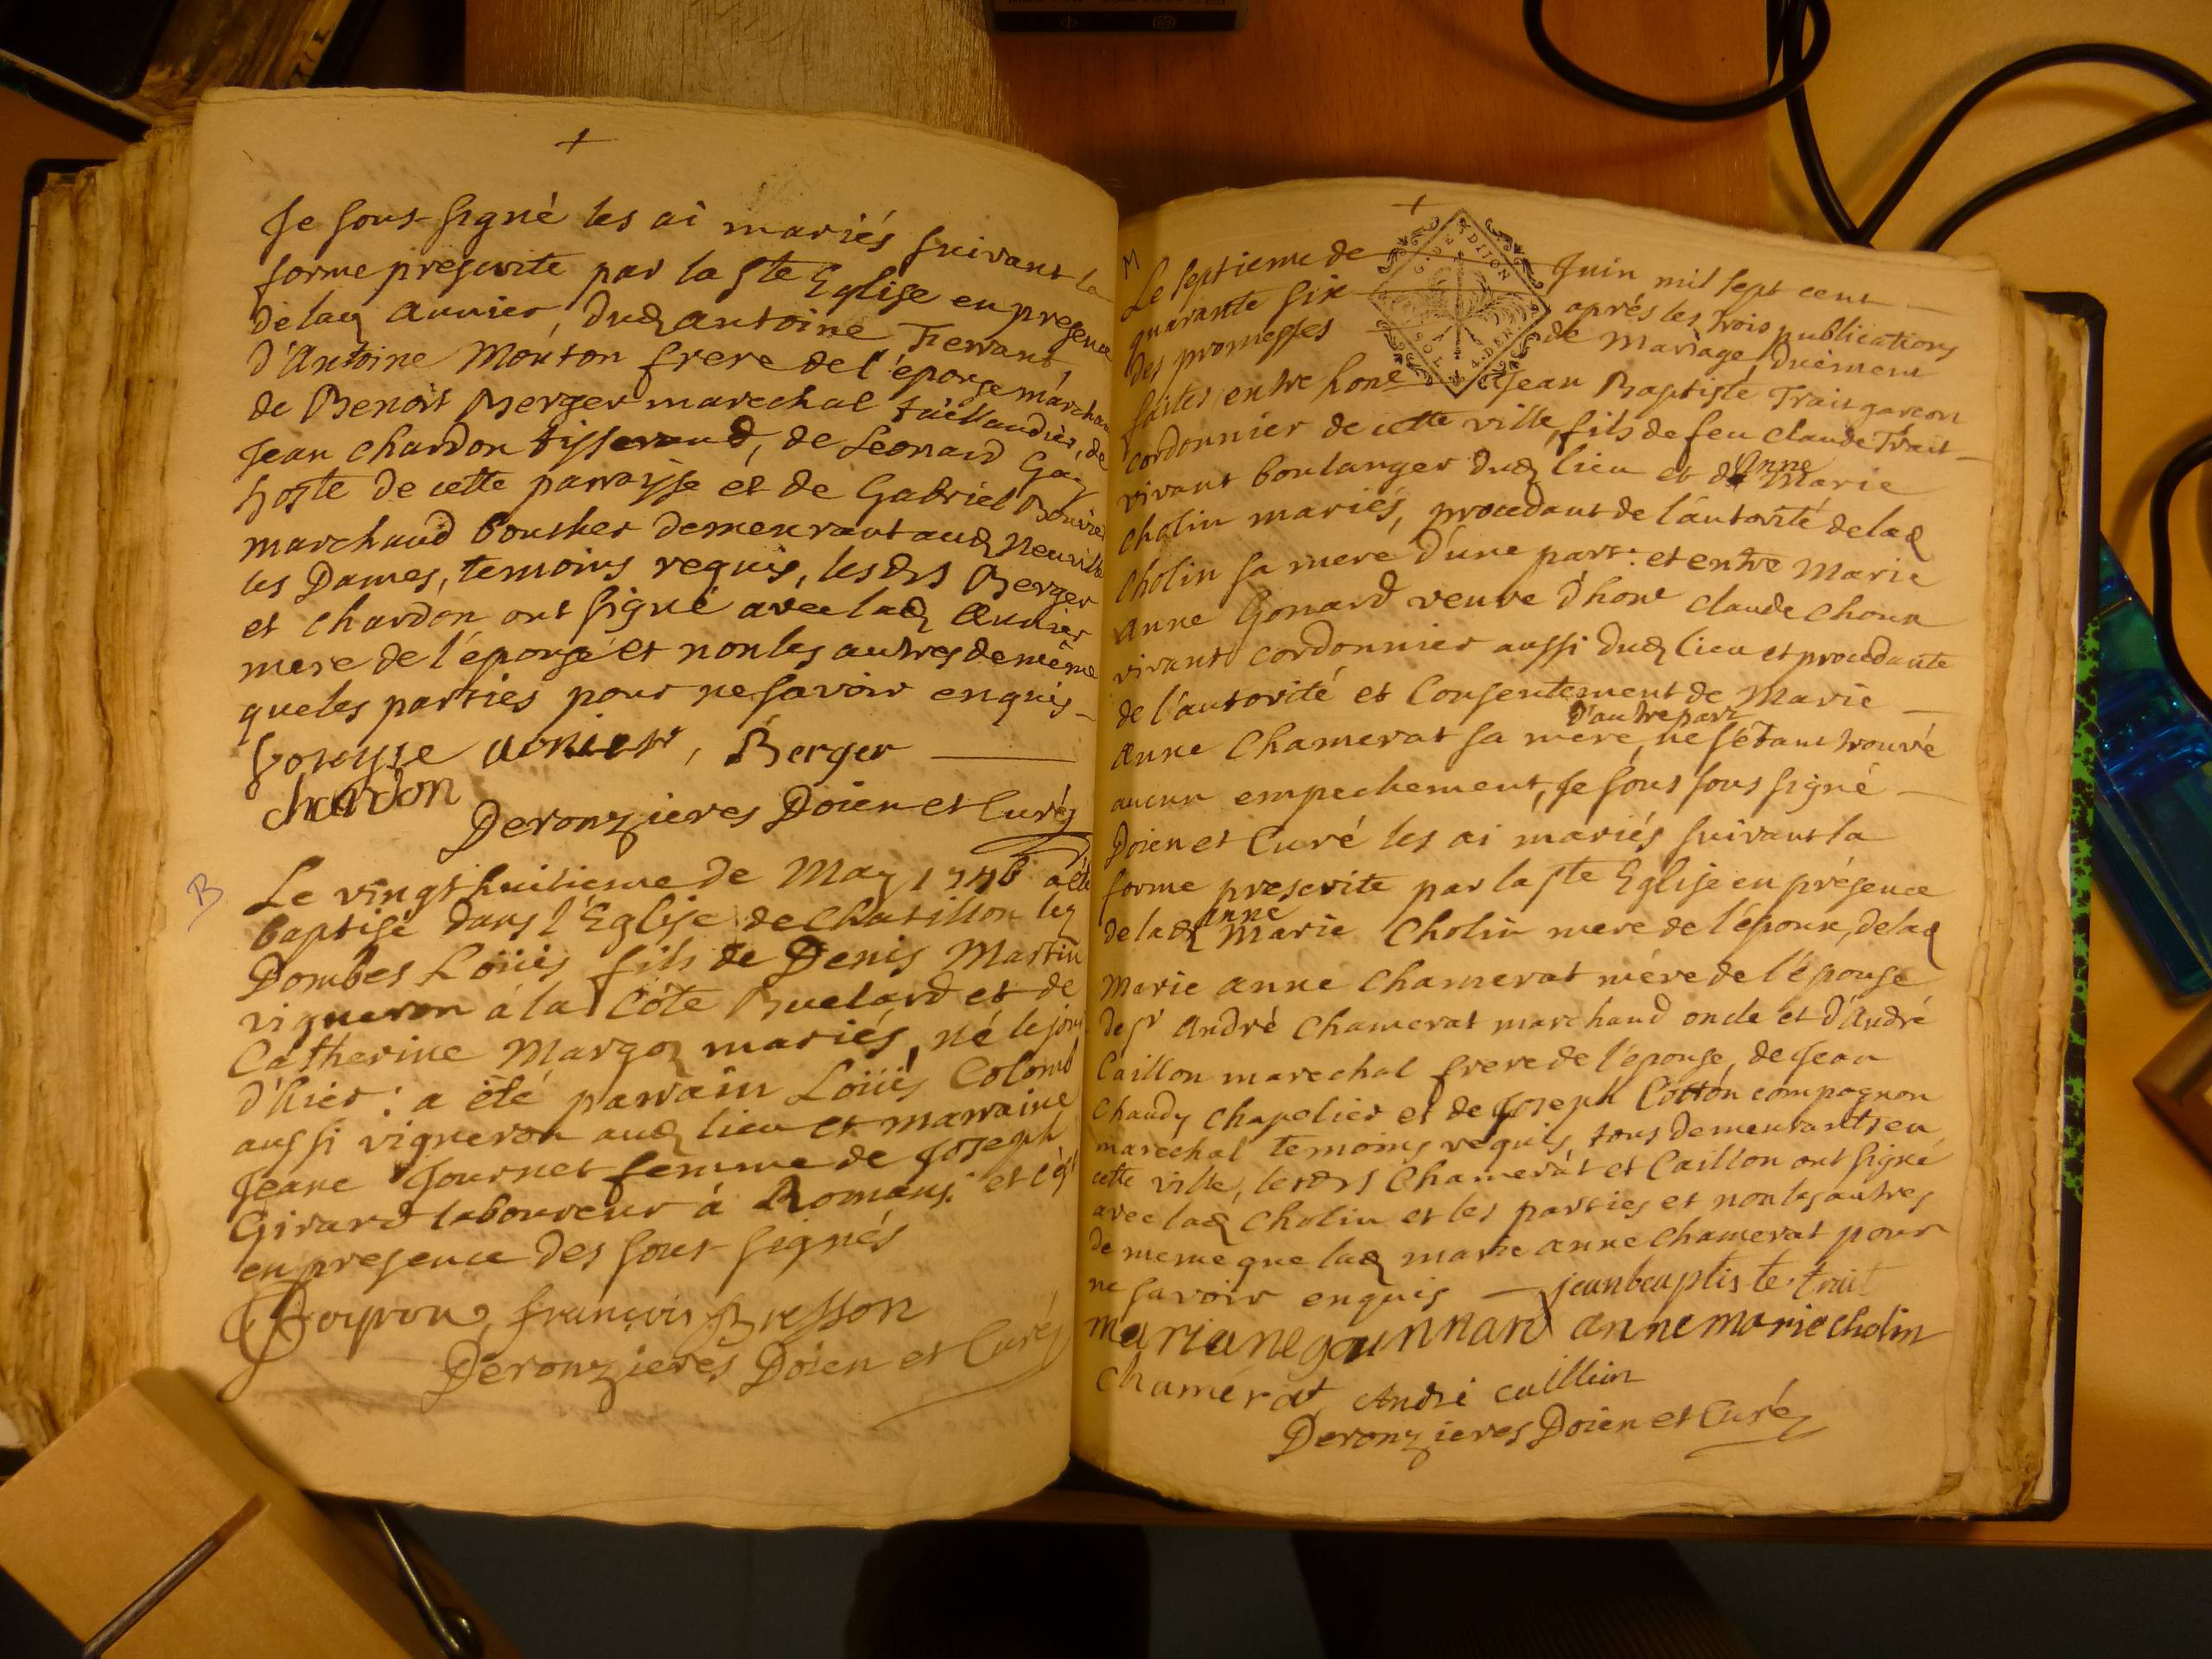 +
Je sous-signé les ai mariés suivant la
forme prescrite par la Ste Eglise en presence
de lad aunier, dud antoine Ferrant,
d'Antoine Mouton frere de l'épouse marchand
de Benoit Berger marechal taillandier, de
Jean chardon tisserand, de Leonard Gay
hoste de cette parroisse et de Gabriel Bouvier
marchand boucher demeurant aud Neuville
les Dames, temoins requis, lesds Berger
et chardon ont signé avec lad aunier
mere de l'épouse et non les autres de même
que les parties pour ne savoir enquis
aunier, Berger
chardon
Deronzieres Doien et Curé
B
Le vingt huitieme de May 1746 a été
baptisé dans l'Eglise de Chatillon lez
Dombes Loüis fils de Denis Martin
vigneron à la Côte Buelard et de
Catherine Margoz mariés, né le jour
d'hier: a été parrain Loüis Colomb
aussi vigneron aud lieu et marraine
Jeane Journet femme de Joseph
Girard laboureur à Romans: et c'est
en presence des sous-signés
françois Bresson
Deronzieres Doien et Curé
+
M
G. DE DIJON
SOL 4. DEN
Le septieme de Juin mil sept cent
quarante six après les trois publications
des promesses de Mariage, duement
faites entre hone Jean Baptiste Trait garcon
cordonnier de cette ville, fils de feu Claude Trait
vivant boulanger dud lieu et d'Anne Marie
Cholin mariés, procedant de l'autorité de lad
Cholin sa mere d'une part: et entre Marie
Anne Gonard veuve d'hone Claude Choux
vivant cordonnier aussi dud lieu et procedante
de l'autorité et Consentement de Marie
Anne Chamerat sa mere d'autre part, ne s'étant trouvé
aucun empechement, Je sous sous signé
Doien et Curé les ai mariés suivant la
forme prescrite par la Ste Eglise en présence
de lad anne Marie Cholin mere de l'époux, de lad
Marie anne Chamerat mére de l'épouse
de Sr André Chamerat marchand oncle et d'André
Caillon marechal frere de l'épouse, de Jean
Chaudy chapelier et de Joseph Cotton compagnon
marechal temoins requis, tous demeurants en
cette ville, lesds Chamerat et Caillon ont signé
avec lad Cholin et les parties et non les autres
de meme que lad marie anne Chamerat pour
ne savoir enquis jeanbeaptiste trait
marianegounnard anne marie cholin
chamerat André caillion
Deronzieres Doien et Curé